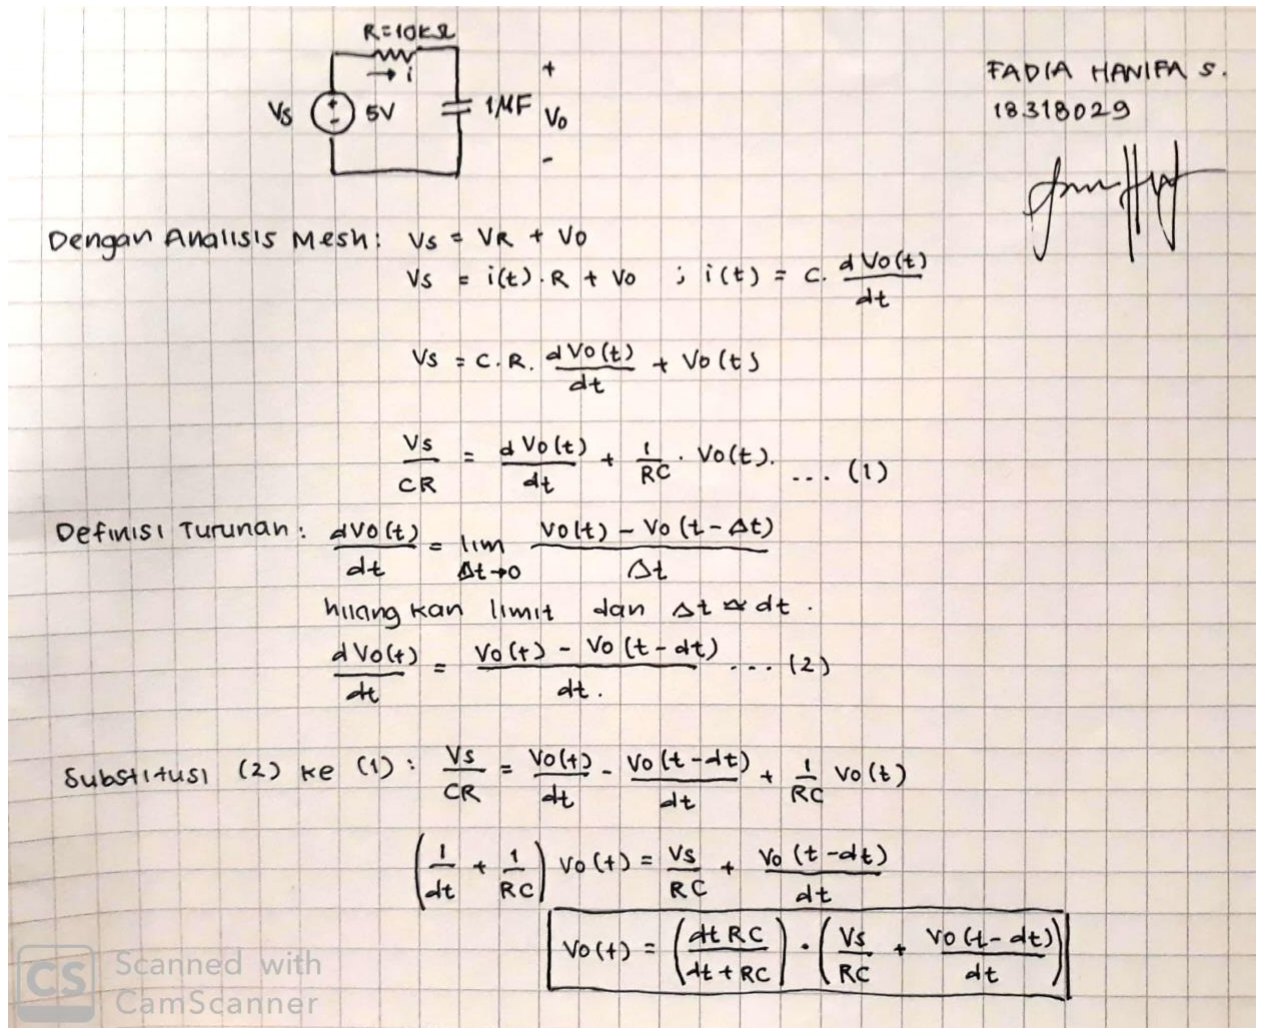 R=10KΩ
→ i
Vs 5V 1MF + Vo -
FADIA HANIFA S.
18318029
Dengan Analisis Mesh: Vs = VR + Vo
Vs = i(t).R + Vo ; i(t) = C. dVo(t)/dt
Vs = C.R. dVo(t)/dt + Vo(t)
Vs/CR = dVo(t)/dt + 1/RC . Vo(t). ... (1)
Definisi Turunan: dVo(t)/dt = lim Δt→0 Vo(t) - Vo(t-Δt)/Δt
hilangkan limit dan Δt ≈ dt.
dVo(t)/dt = Vo(t) - Vo(t-dt)/dt. ... (2)
Substitusi (2) ke (1): Vs/CR = Vo(t)/dt - Vo(t-dt)/dt + 1/RC Vo(t)
(1/dt + 1/RC) Vo(t) = Vs/RC + Vo(t-dt)/dt
Vo(t) = (dt RC/dt + RC) . (Vs/RC + Vo(t-dt)/dt)
CS Scanned with
CamScanner